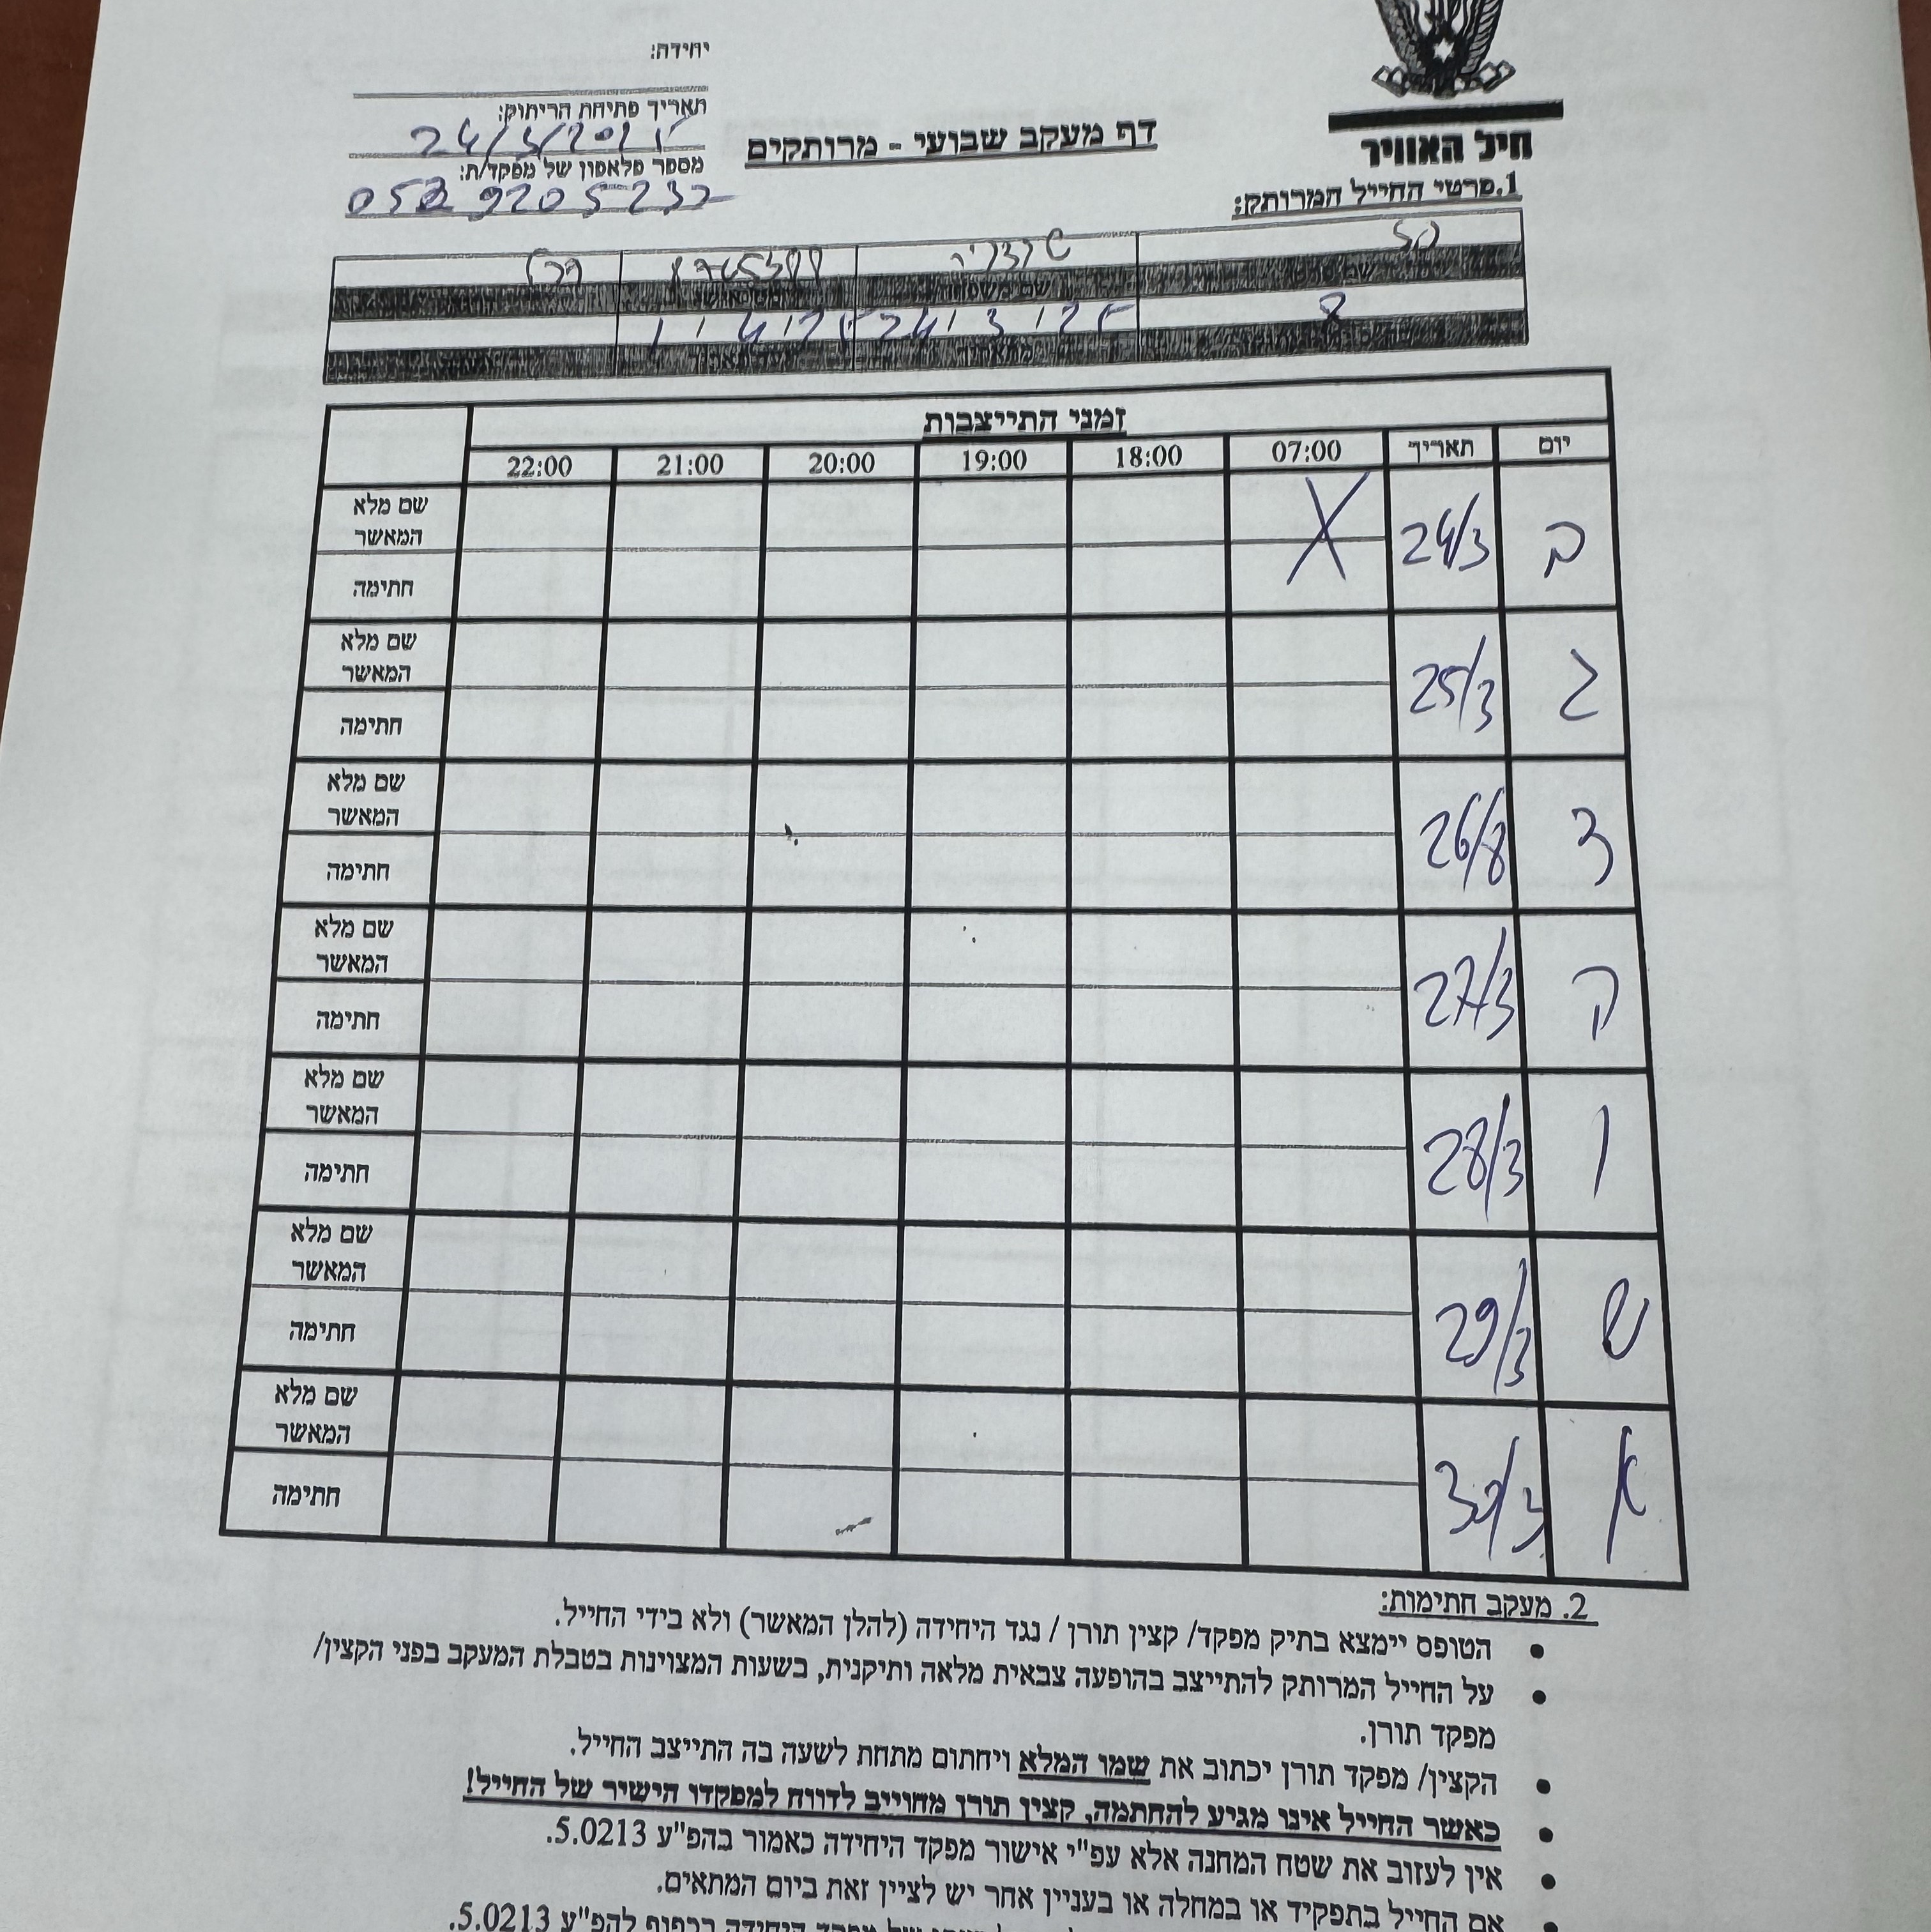 חיל האוויר
יחידה:
תאריך פתיחת הריתוק:
דף מעקב שבועי - מרותקים
מספר פלאפון של מפקד/ת:
1.פרטי החייל המרותק:
שם משפחה
8
24/3/25
1/4/25
זמני התייצבות
יום תאריך 07:00 18:00 19:00 20:00 21:00 22:00
ב 24/3 X שם מלא
המאשר
חתימה
ג 25/3 שם מלא
המאשר
חתימה
ד 26/3 שם מלא
המאשר
חתימה
ה 27/3 שם מלא
המאשר
חתימה
ו 28/3 שם מלא
המאשר
חתימה
ש 29/3 שם מלא
המאשר
חתימה
א 30/3 שם מלא
המאשר
חתימה
2. מעקב חתימות:
• הטופס יימצא בתיק מפקד/ קצין תורן / נגד היחידה (להלן המאשר) ולא בידי החייל.
• על החייל המרותק להתייצב בהופעה צבאית מלאה ותיקנית, בשעות המצוינות בטבלת המעקב בפני הקצין/
מפקד תורן.
• הקצין/ מפקד תורן יכתוב את שמו המלא ויחתום מתחת לשעה בה התייצב החייל.
• כאשר החייל אינו מגיע להחתמה, קצין תורן מחוייב לדווח למפקדו הישיר של החייל!
• אין לעזוב את שטח המחנה אלא עפ"י אישור מפקד היחידה כאמור בהפ"ע 5.0213.
• אם החייל בתפקיד או במחלה או בעניין אחר יש לציין זאת ביום המתאים.
של מפקד היחידה בכפוף להפ"ע 5.0213.